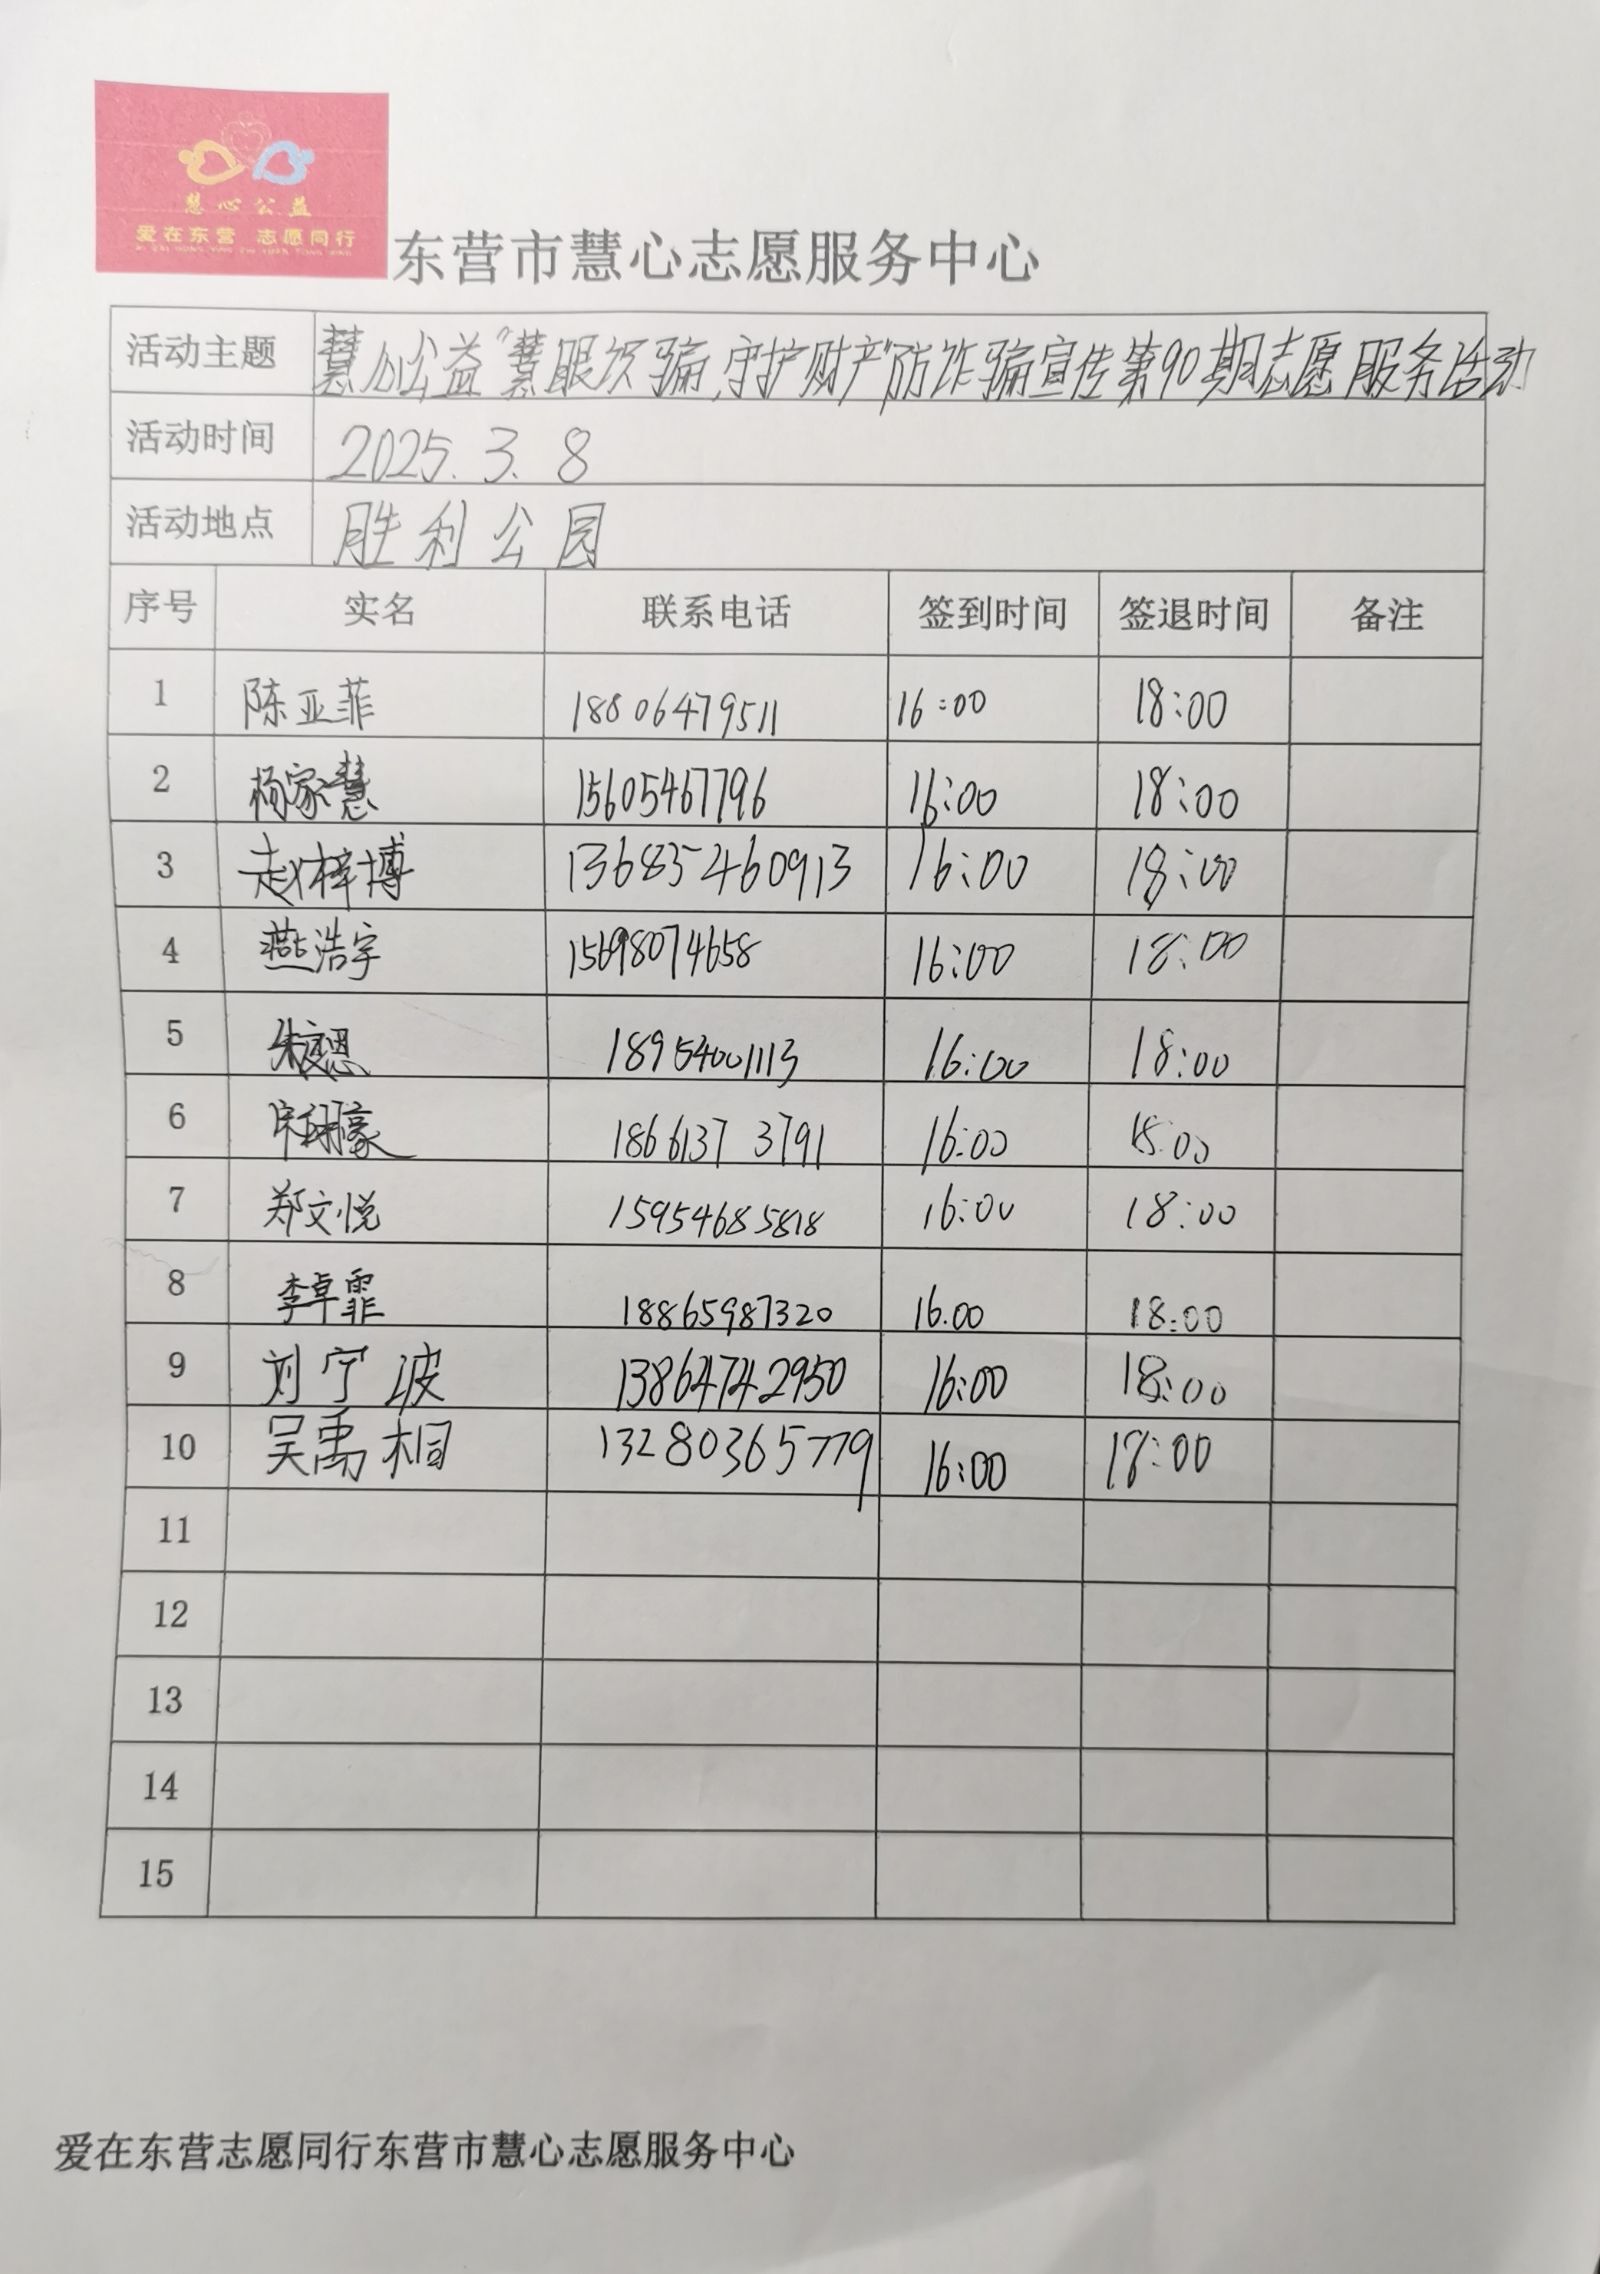 慧心公益
爱在东营 志愿同行
东营市慧心志愿服务中心
活动主题 慧心公益"慧眼 骗,守护财产"防诈骗宣传第90期志愿服务活动
活动时间 2025.3.8
活动地点 胜利公园
序号 实名 联系电话 签到时间 签退时间 备注
1 陈亚菲 18806479511 16:00 18:00
2 杨家慧 15605467796 16:00 18:00
3 赵梓博 13685460913 16:00 18:00
4 燕浩宇 15698074658 16:00 18:00
5 18954001113 16:00 18:00
6 18661373791 16:00 18:00
7 郑文悦 15954685818 16:00 18:00
8 李卓霏 18865987320 16.00 18:00
9 刘宁波 13864742950 16:00 18:00
10 吴禹桐 13280365779 16:00 18:00
11
12
13
14
15
爱在东营志愿同行东营市慧心志愿服务中心